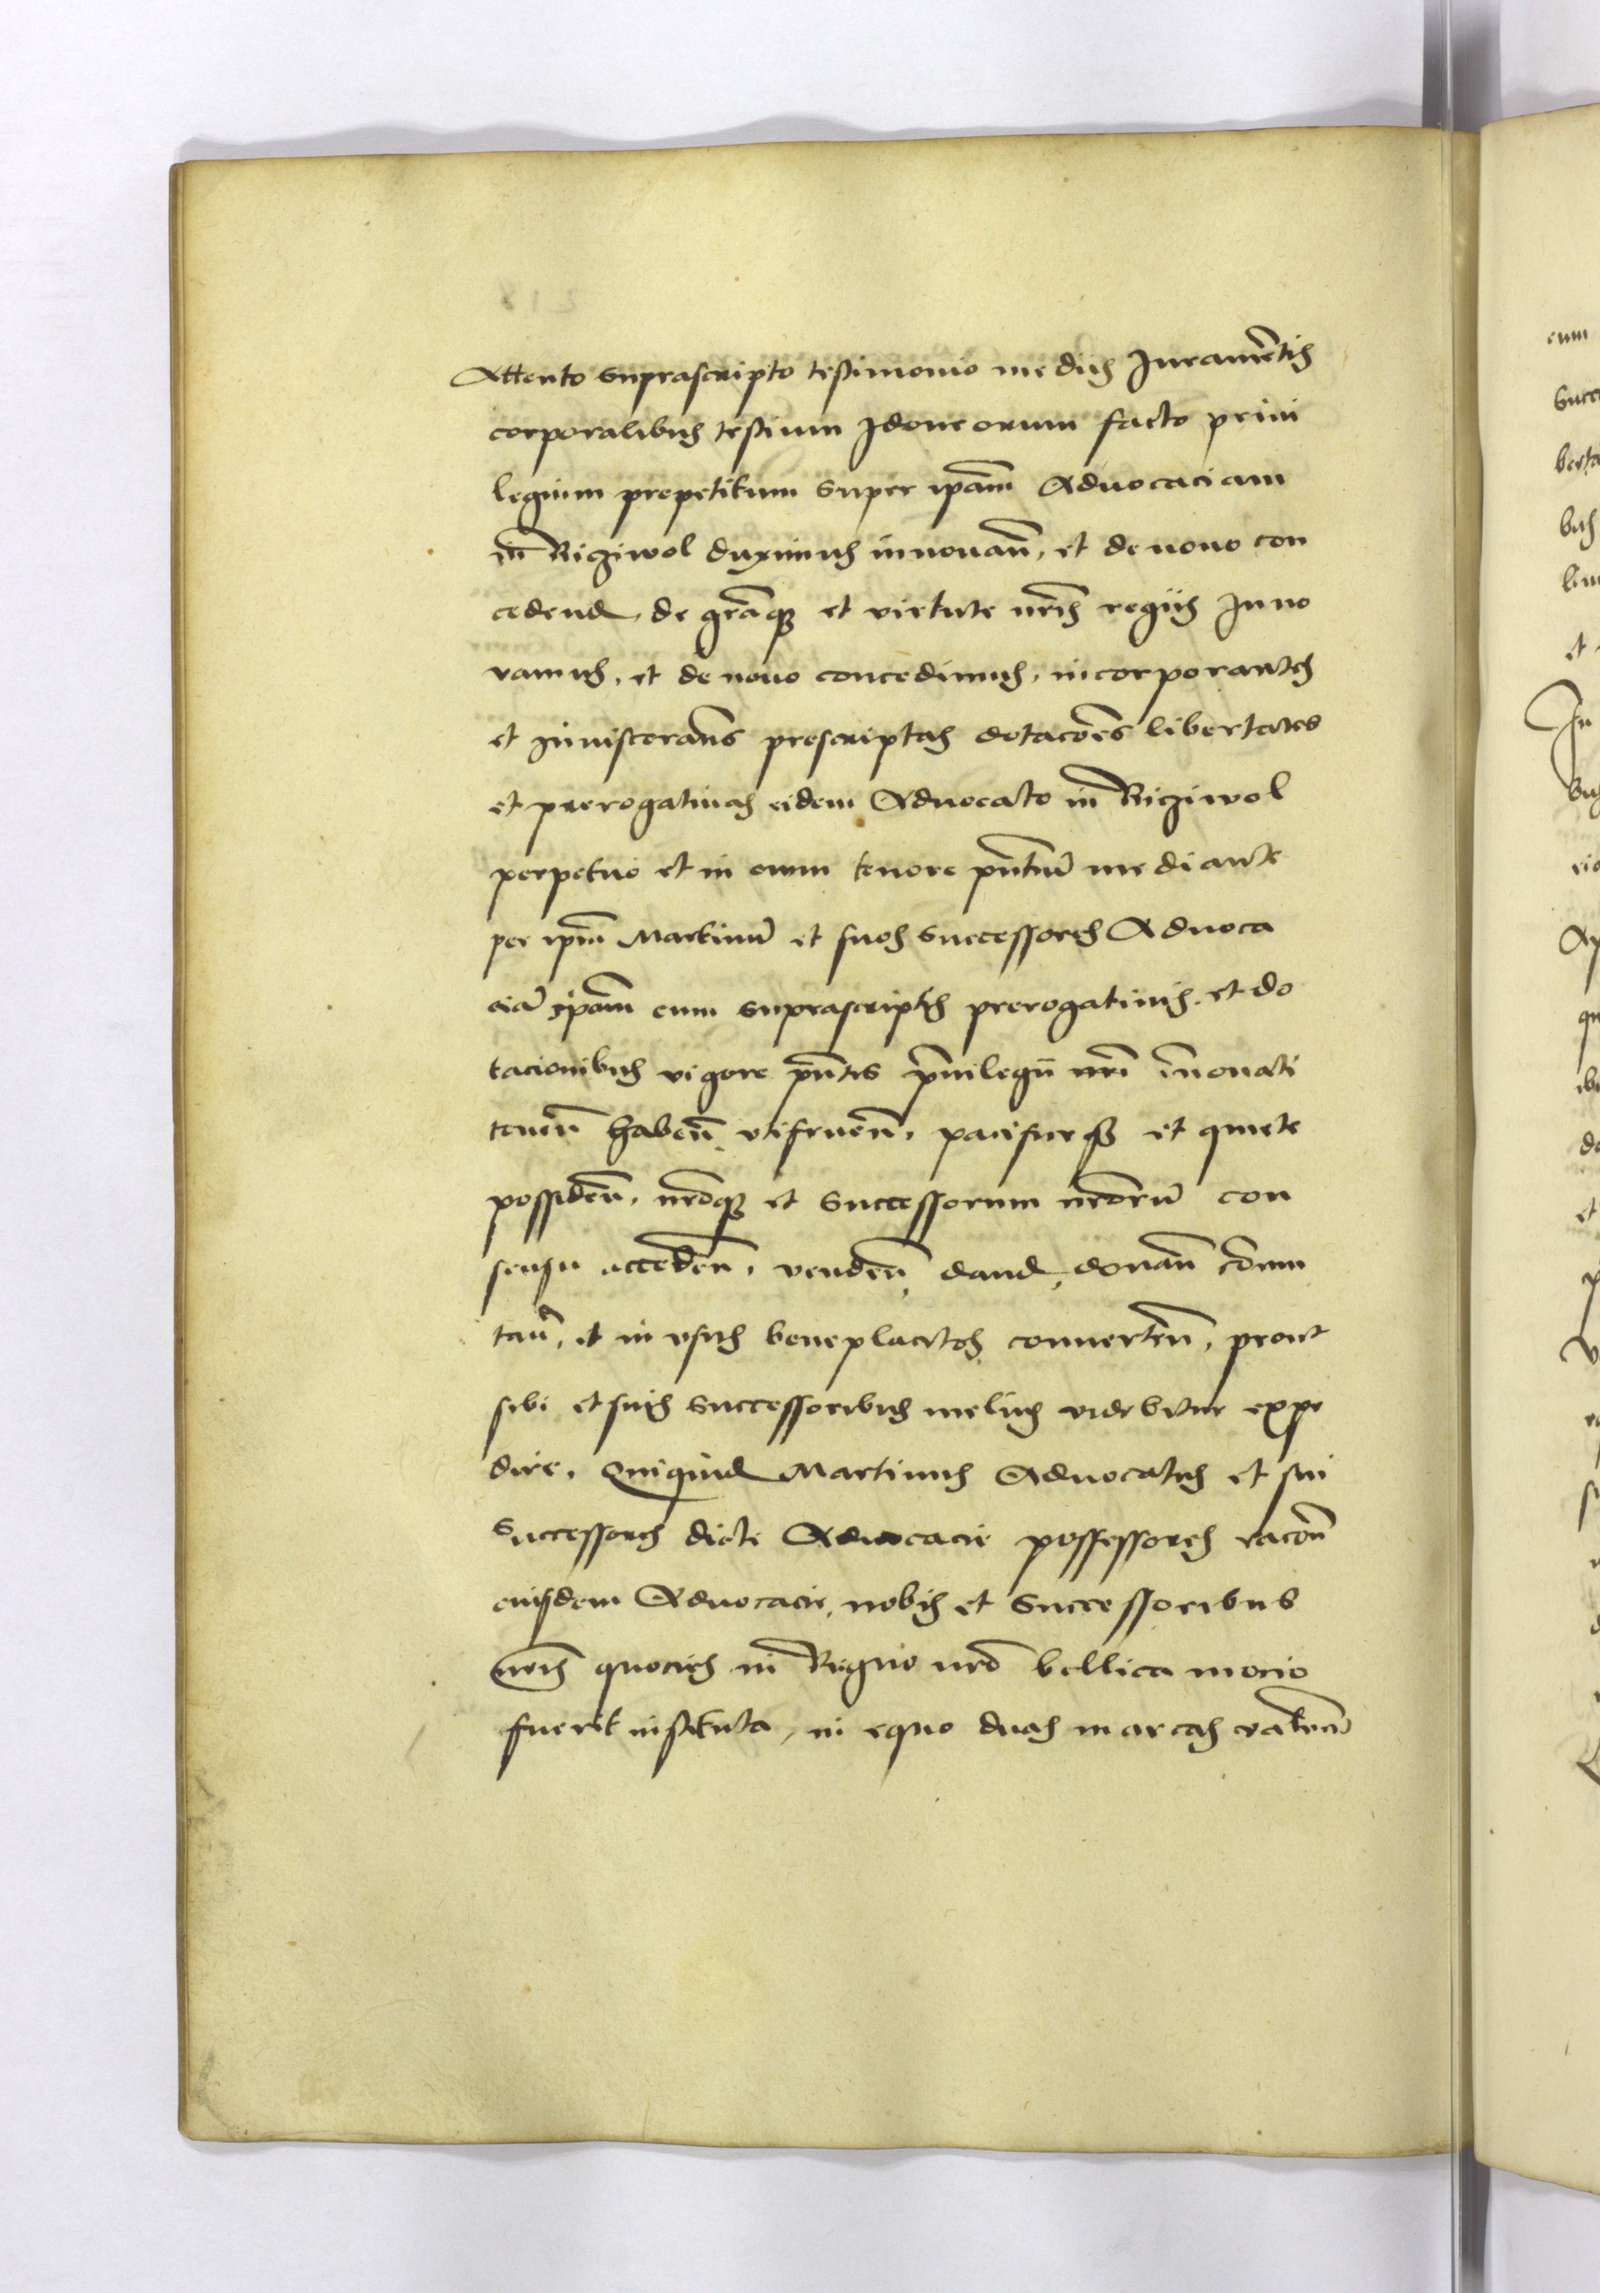 Attento suprascripto testimonio mediis Juramētis
corporalibus testium Jdoneorum facto priui
legium prepetitum super ipam̄ Aduocaciam
in̄ Biziwol duximus innouan̄, et de nouo con
cedend, de gr̄aq₃ et virtute nr̄is regiis Inno
vamus, et de nouo concedimus, incorporantes
et Inuiscerans̄ prescriptas dotacōes libertates
et prerogatiuas eidem Aduocato in̄ Biziwol
perpetuo et in euum tenore pn̄tiū mediante
per ipm̄ Martinū et suos Successores Aduoca
ciā ipam̄ cum suprascriptis prerogatiuis et do
tacionibus vigore pn̄tis p̄uilegii nr̄i in̄ouati
tenen̄ haben̄ vtifruen̄, pacifice et quiete
possiden̄, nr̄oq₃ et Successorum nr̄orū con
sensu acceden̄, venden̄, dand, donan̄ com̄u
tan̄, et in vsus beneplacitos conuerten̄, prout
sibi et suis Successoribus melius videbitur expe
dire, Quiquid Martinus Aduocatus et sui
Successores dicte Aduocacie possessores racōn̄
eiusdem Aduocacie, nobis et Successoribus
nr̄is quocies in̄ Regno nr̄o bellica mocio
fuerit instituta, in equo duas marcas valen̄